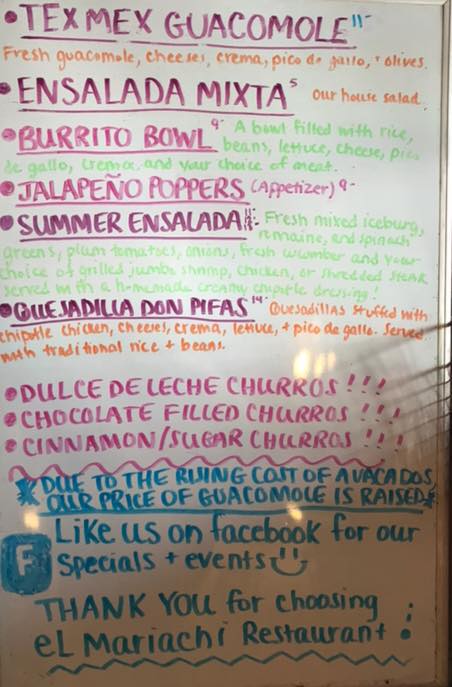 • TEX MEX GUACOMOLE 11-
Fresh guacomole, cheeses, crema, pico de gallo, + olives.
• ENSALADA MIXTA 5 Our house salad.
• BURRITO BOWL 9- A bowl filled with rice,
beans, lettuce, cheese, pico
de gallo, crema, and your choice of meat.
• JALAPEÑO POPPERS (Appetizer) 9-
• SUMMER ENSALADA Fresh mixed iceburg,
romaine, and spinach
greens, plum tomatoes, onions, fresh cucumber and your
choice of grilled jumbo shrimp, chicken, or shredded steak
served with a homemade creamy chipotle dressing!
• QUEJADILLA DON PIFAS 14- Quesadillas stuffed with
chipotle chicken, cheeses, crema, lettuce, + pico de gallo. Served
with traditional rice + beans.
• DULCE DE LECHE CHURROS !!!
• CHOCOLATE FILLED CHURROS !!!
• CINNAMON/SUGAR CHURROS !!!
* DUE TO THE RISING COST OF AVACADOS,
OUR PRICE OF GUACOMOLE IS RAISED *
F Like us on facebook for our
Specials + events
THANK YOU for choosing
eL Mariachi Restaurant !